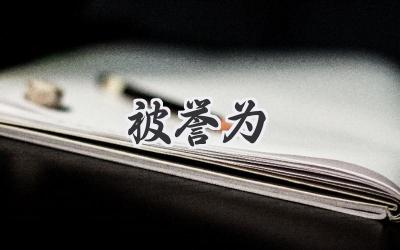 被誉为